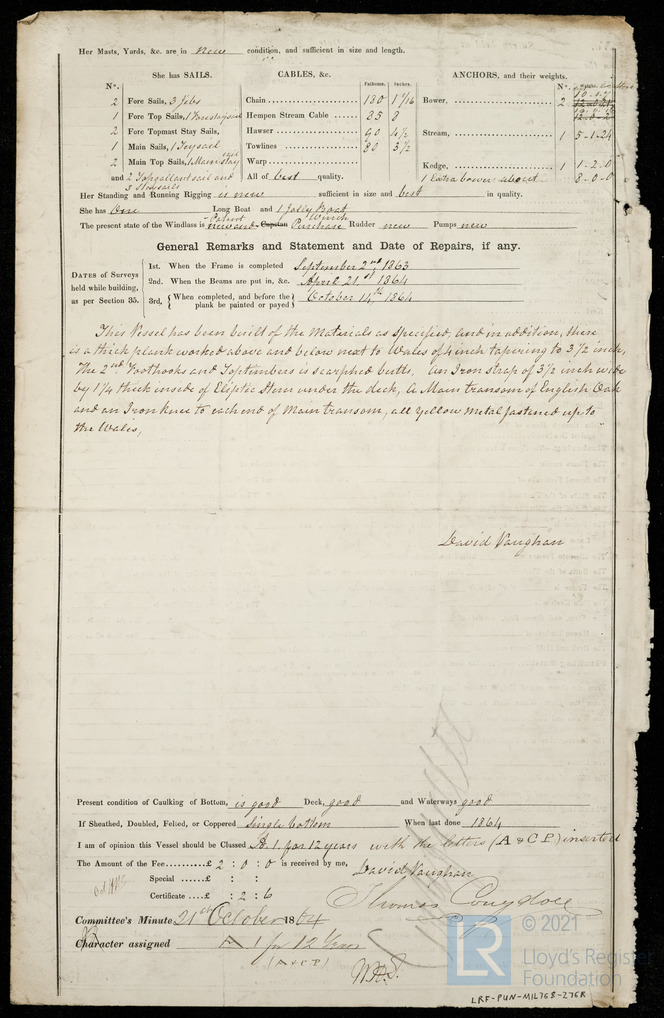 Her Masts, Yards, &c. are in New condition, and sufficient in size and length.
She has SAILS.
CABLES, &c.
Fathoms. Inches.
ANCHORS, and their weights.
N°.
N°.
2 Fore Sails, 3 Jibs
Chain 180 1 1/16
Bower, 2
1 Fore Top Sails, 1 Forestaysail
Hempen Stream Cable 85 8
2 Fore Topmast Stay Sails,
Hawser 90 4½
Stream, 1 5-1-24
1 Main Sails, 1 Trysail
Towlines 80 3½
2 Main Top Sails, 1 Main stay sail
Warp
Kedge, 1 1-2-0
and 2 Topgallant sail and
All of best quality.
1 Extra bower about 8-0-0
Her Standing and Running Rigging is new sufficient in size and best in quality.
She has One Long Boat and 1 Jolly Boat
Patent Winch
The present state of the Windlass is new and Capstan Purchase Rudder new Pumps new
General Remarks and Statement and Date of Repairs, if any.
DATES of Surveys held while building, as per Section 35.
1st. When the Frame is completed September 2nd, 1863
2nd. When the Beams are put in, &c. April 21st 1864
3rd, When completed, and before the plank be painted or payed October 14th 1864
This Vessel has been built of the Materials as Specified, and in addition, there
is a thick plank worked above and below next to Wales of 4 inch tapering to 3½ inch,
The 2nd Foothooks and Toptimbers is scarphed butts. An Iron strap of 3½ inch wide
by 1¼ thick inside of Eliptic Stern under the deck, A Main transom of English Oak
and an Iron knee to each end of Main transom, all Yellow Metal fastened up to
the Wales,
David Vaughan
Present condition of Caulking of Bottom, is good Deck, good and Waterways good
If Sheathed, Doubled, Felted, or Coppered Single bottom When last done 1864
I am of opinion this Vessel should be Classed A 1 for 12 years with the letters (A & C P) inserted
The Amount of the Fee £ 2 : 0 : 0 is received by me, David Vaughan
Special £ :
Certificate £ : 2 : 6
Thomas Congdon
Committee's Minute 21st October 1864
Character assigned A 1 for 12 Years
(A & C P)
© 2021
LR
Lloyd's Register
Foundation
LRF-PUN-MIL768-276R